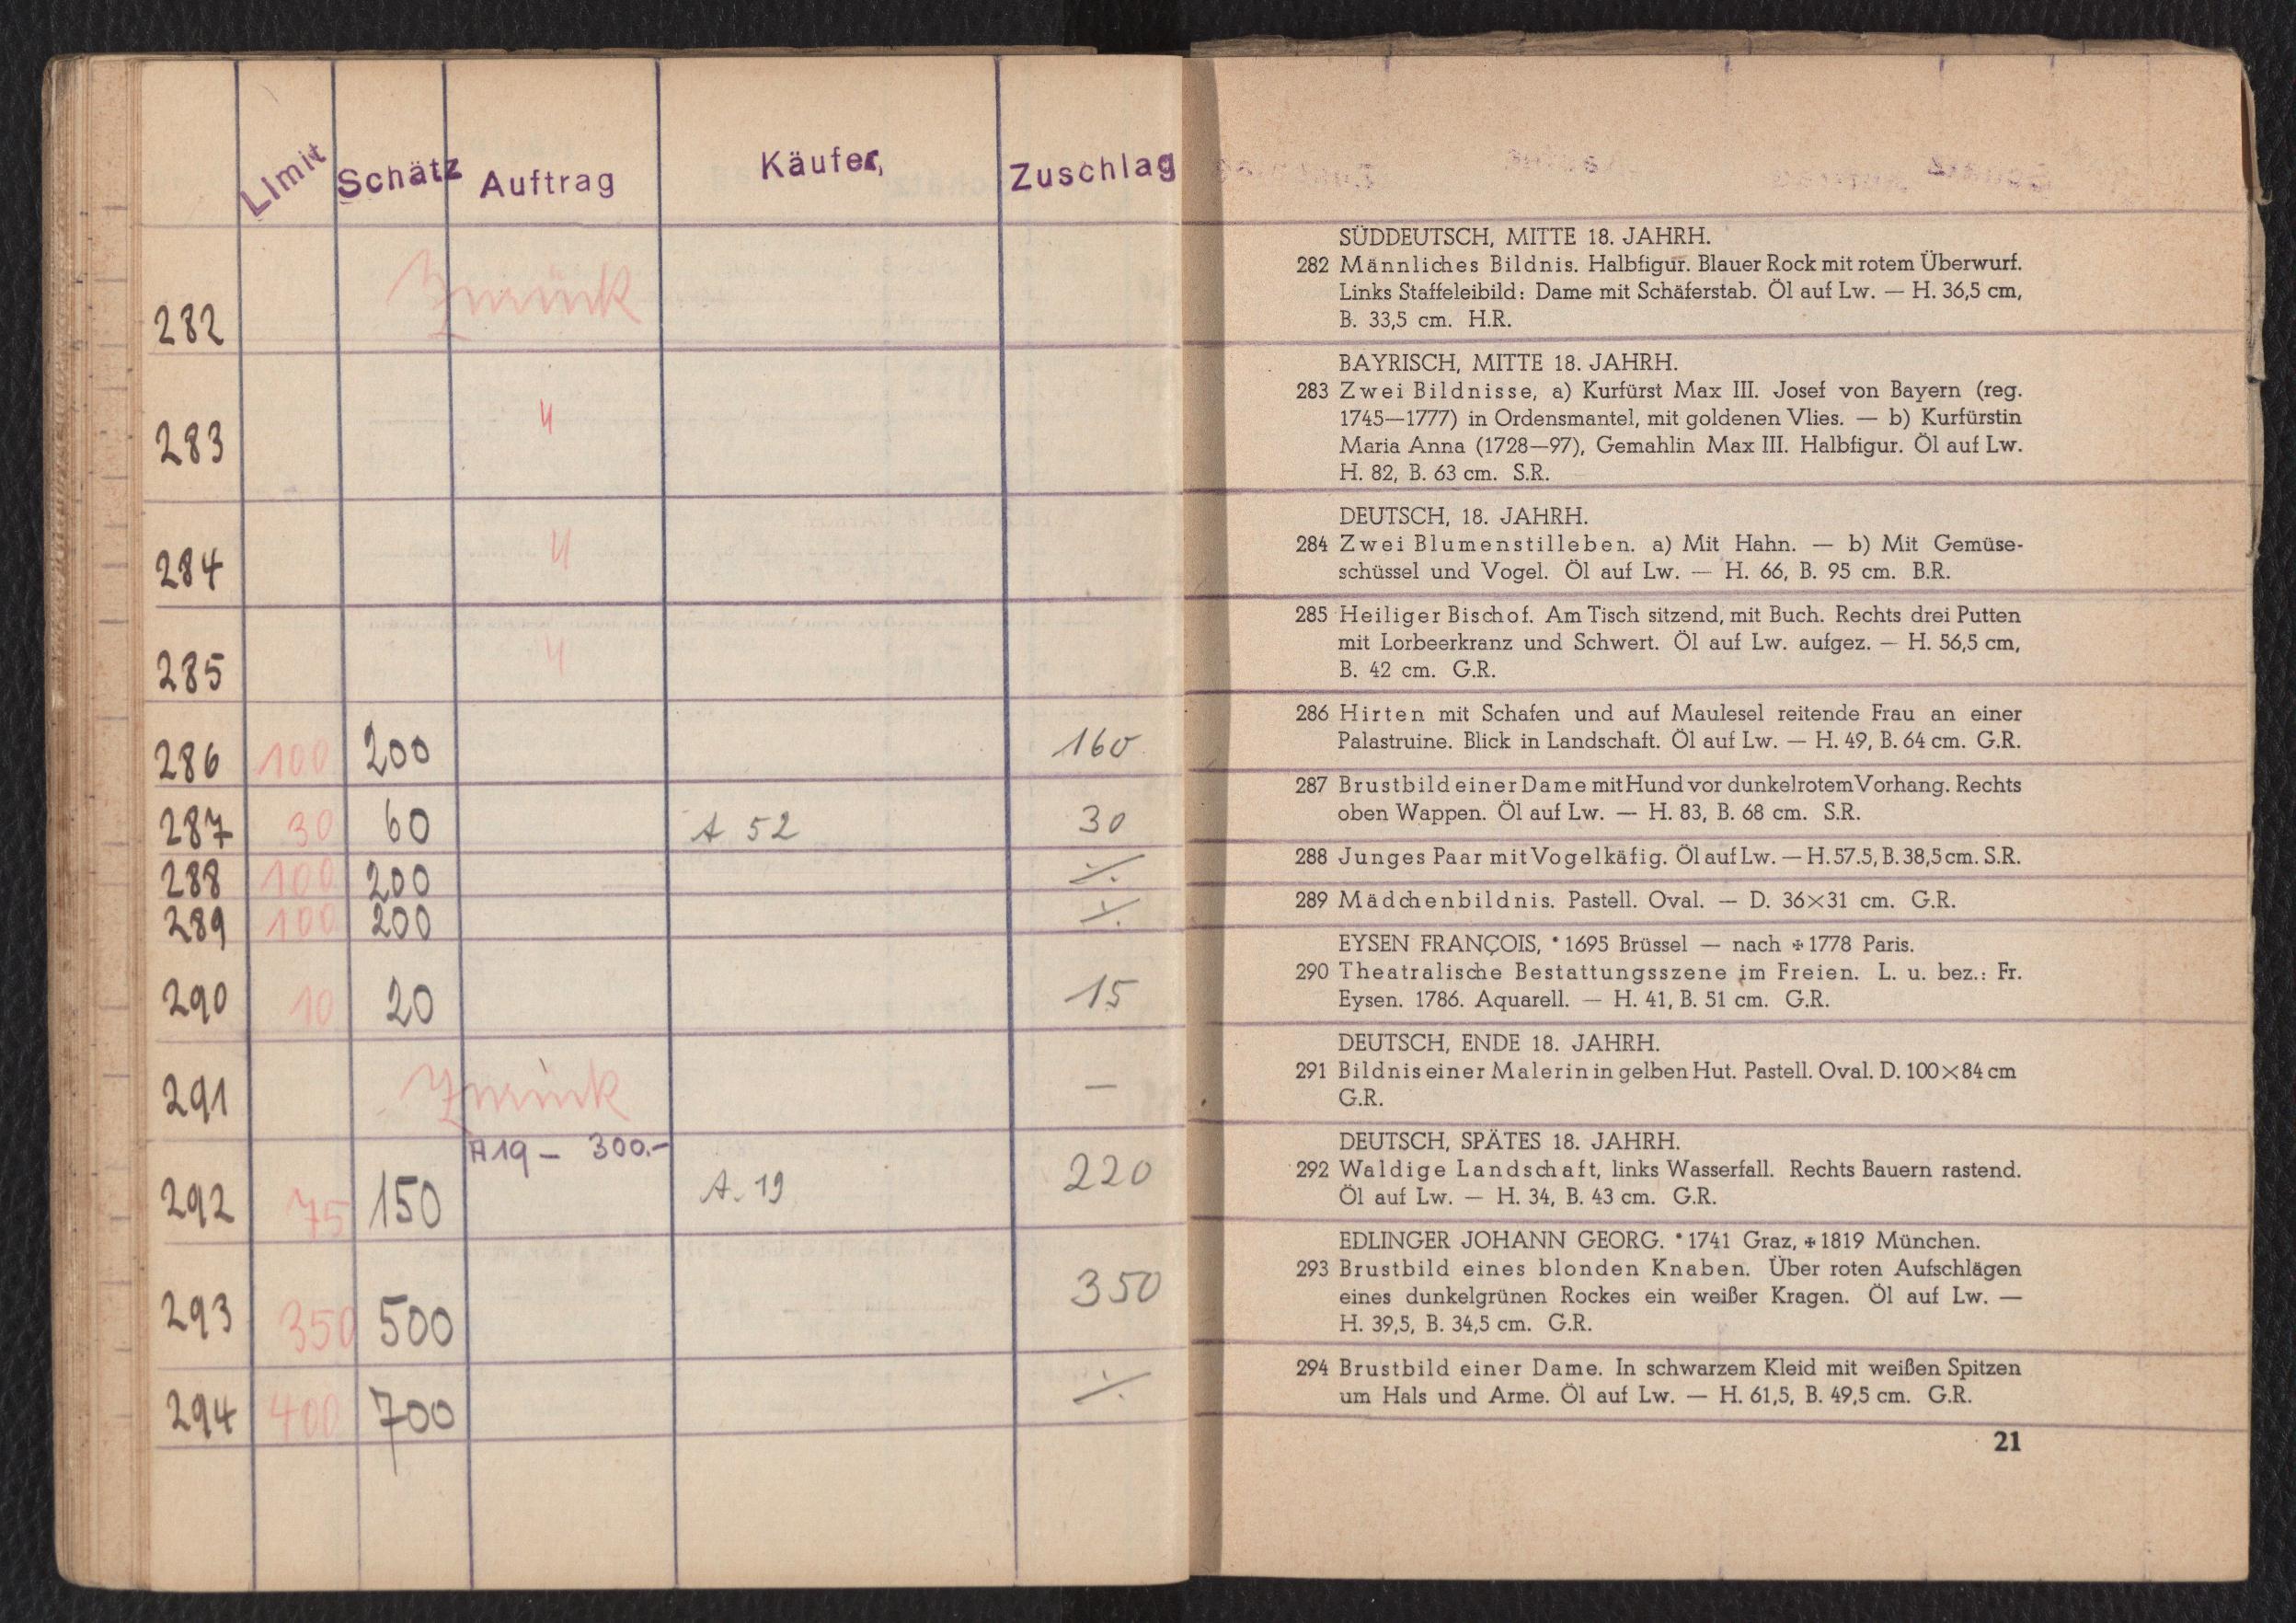 Limit Schätz Auftrag Käufer, Zuschlag
282 Zurück
283 "
284 "
285 "
286 100 200 160
287 30 60 A 52 30
288 100 200 ·/.
289 100 200 ·/.
290 10 20 15
291 Zurück —
A19 – 300.–
292 75 150 A. 19 220
293 350 500 350
294 400 700 ·/.
SÜDDEUTSCH, MITTE 18. JAHRH.
282 Männliches Bildnis. Halbfigur. Blauer Rock mit rotem Überwurf.
Links Staffeleibild: Dame mit Schäferstab. Öl auf Lw. — H. 36,5 cm,
B. 33,5 cm. H.R.
BAYRISCH, MITTE 18. JAHRH.
283 Zwei Bildnisse, a) Kurfürst Max III. Josef von Bayern (reg.
1745—1777) in Ordensmantel, mit goldenen Vlies. — b) Kurfürstin
Maria Anna (1728—97), Gemahlin Max III. Halbfigur. Öl auf Lw.
H. 82, B. 63 cm. S.R.
DEUTSCH, 18. JAHRH.
284 Zwei Blumenstilleben. a) Mit Hahn. — b) Mit Gemüse-
schüssel und Vogel. Öl auf Lw. — H. 66, B. 95 cm. B.R.
285 Heiliger Bischof. Am Tisch sitzend, mit Buch. Rechts drei Putten
mit Lorbeerkranz und Schwert. Öl auf Lw. aufgez. — H. 56,5 cm,
B. 42 cm. G.R.
286 Hirten mit Schafen und auf Maulesel reitende Frau an einer
Palastruine. Blick in Landschaft. Öl auf Lw. — H. 49, B. 64 cm. G.R.
287 Brustbild einer Dame mit Hund vor dunkelrotem Vorhang. Rechts
oben Wappen. Öl auf Lw. — H. 83, B. 68 cm. S.R.
288 Junges Paar mit Vogelkäfig. Öl auf Lw. — H. 57.5, B. 38,5 cm. S.R.
289 Mädchenbildnis. Pastell. Oval. — D. 36×31 cm. G.R.
EYSEN FRANÇOIS, * 1695 Brüssel — nach ✠ 1778 Paris.
290 Theatralische Bestattungsszene im Freien. L. u. bez.: Fr.
Eysen. 1786. Aquarell. — H. 41, B. 51 cm. G.R.
DEUTSCH, ENDE 18. JAHRH.
291 Bildnis einer Malerin in gelben Hut. Pastell. Oval. D. 100×84 cm
G.R.
DEUTSCH, SPÄTES 18. JAHRH.
292 Waldige Landschaft, links Wasserfall. Rechts Bauern rastend.
Öl auf Lw. — H. 34, B. 43 cm. G.R.
EDLINGER JOHANN GEORG. * 1741 Graz, ✠ 1819 München.
293 Brustbild eines blonden Knaben. Über roten Aufschlägen
eines dunkelgrünen Rockes ein weißer Kragen. Öl auf Lw. —
H. 39,5, B. 34,5 cm. G.R.
294 Brustbild einer Dame. In schwarzem Kleid mit weißen Spitzen
um Hals und Arme. Öl auf Lw. — H. 61,5, B. 49,5 cm. G.R.
21